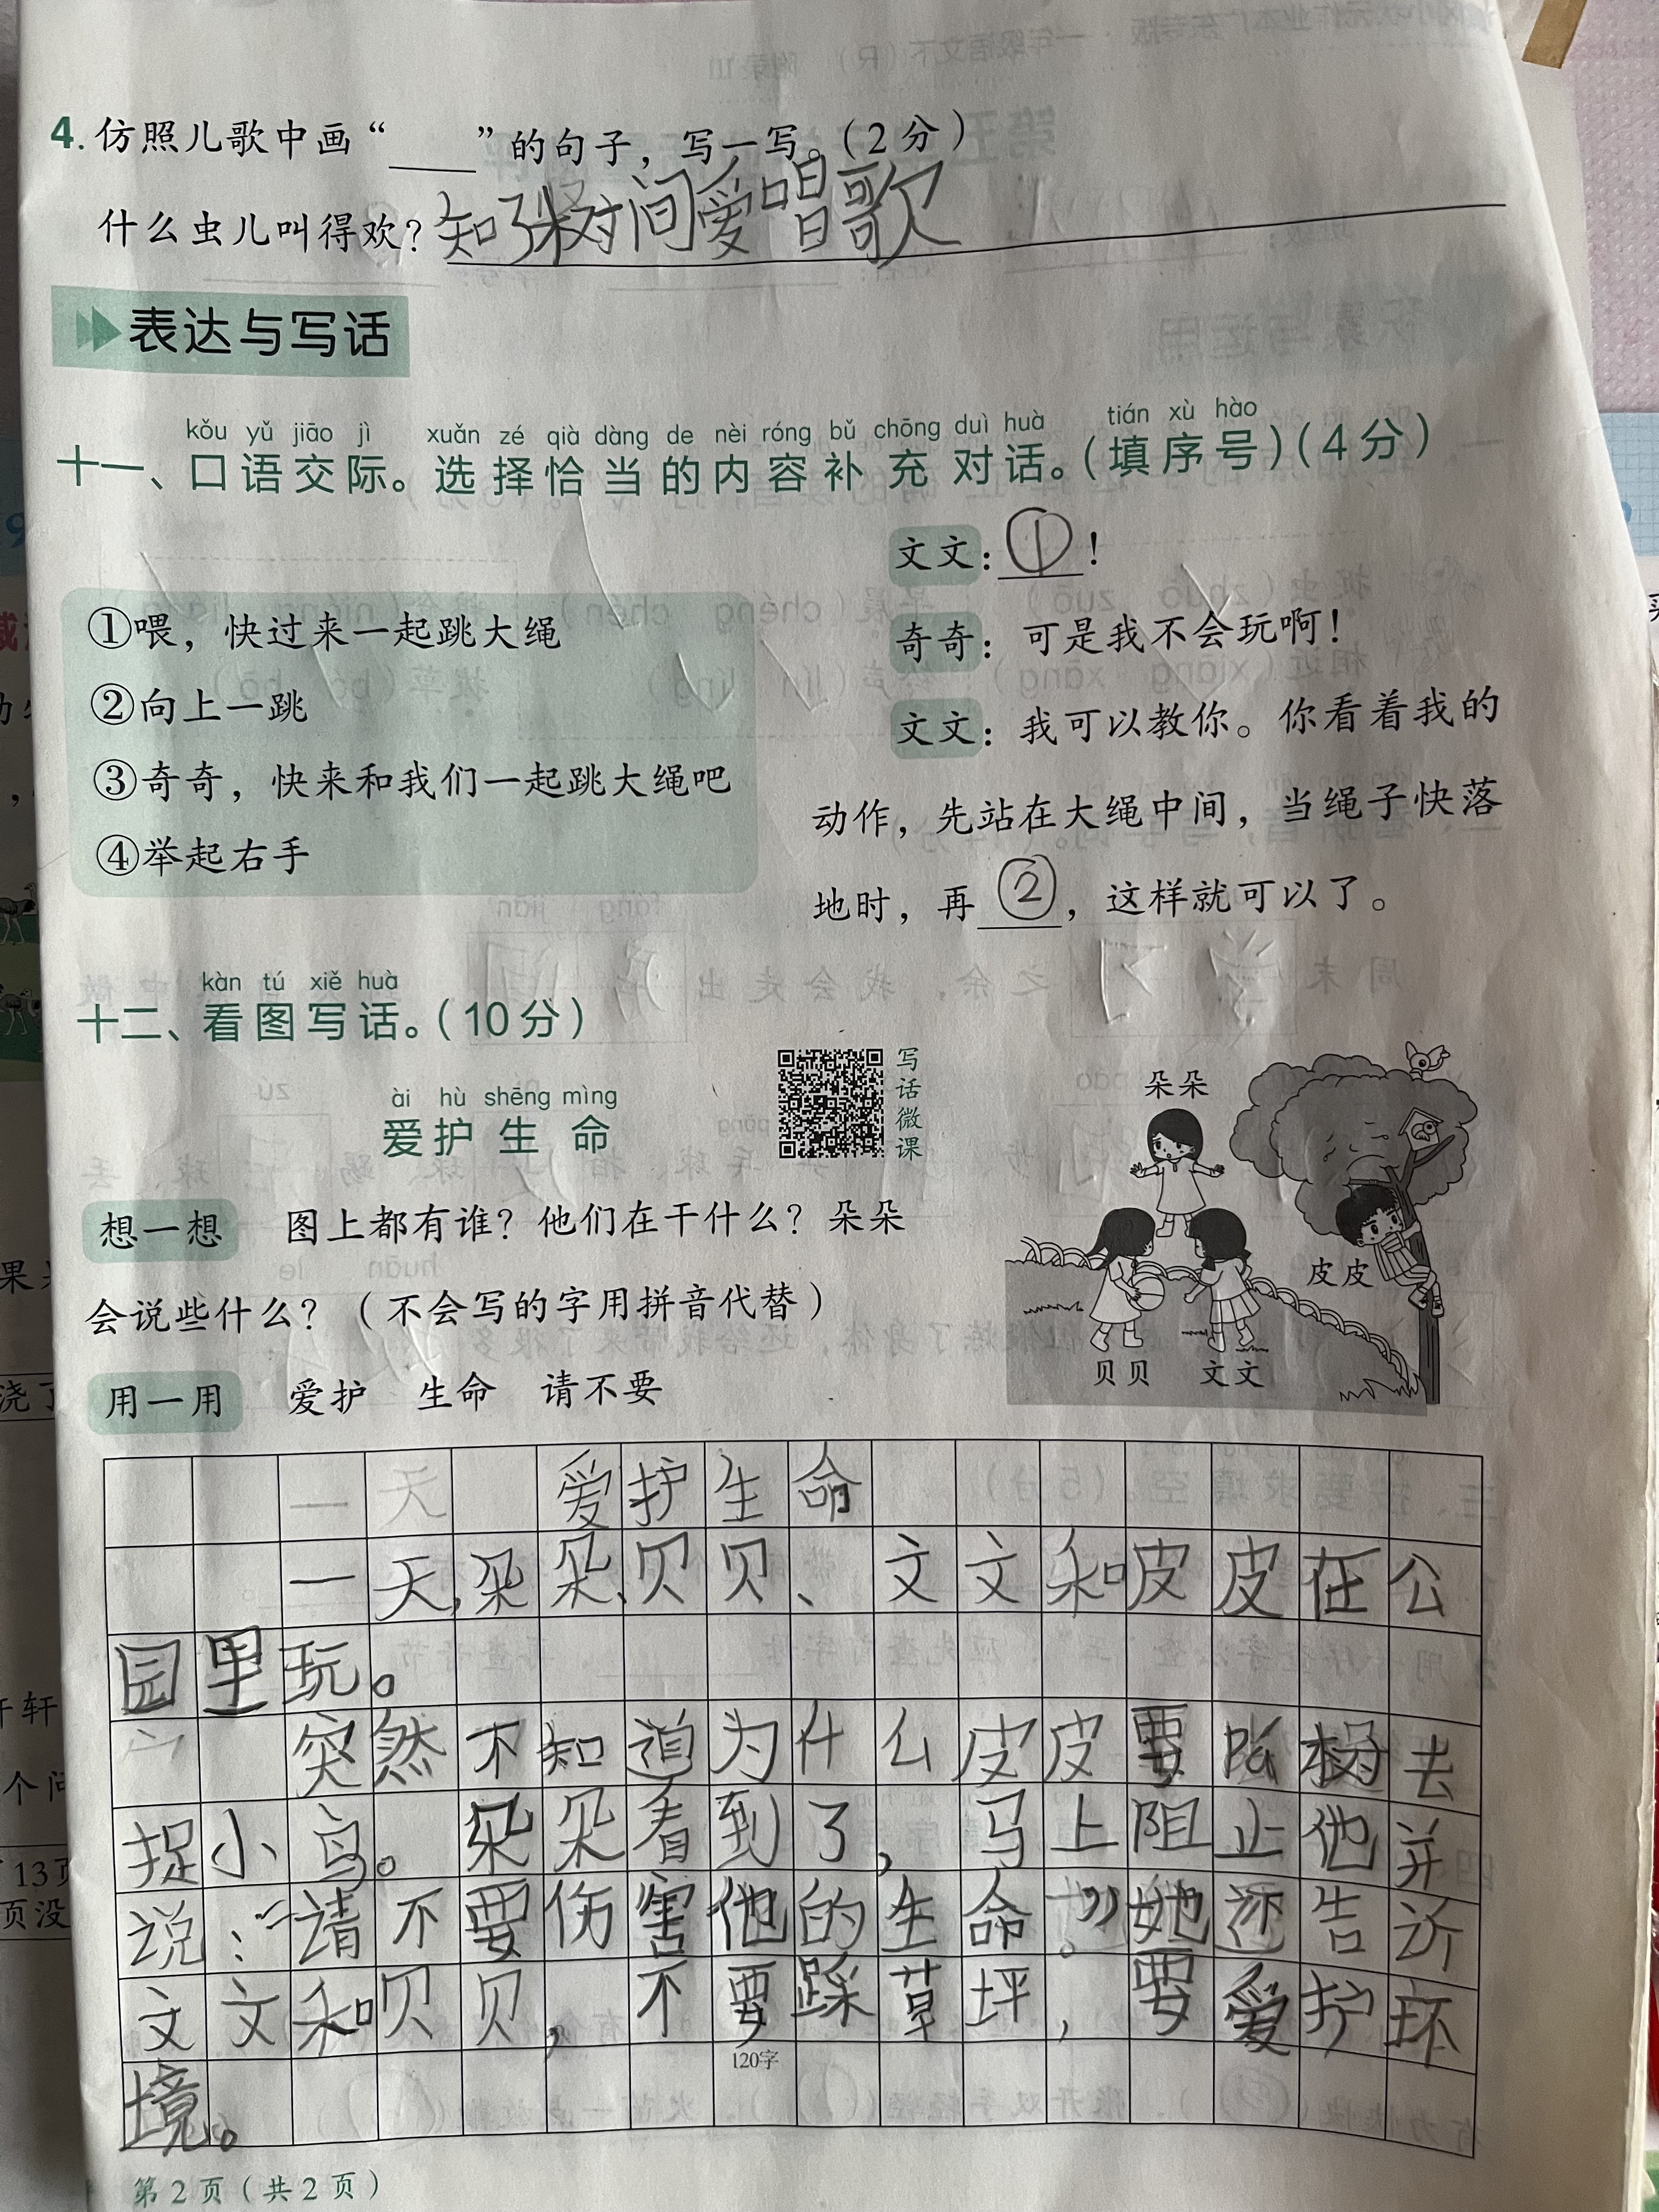 4. 仿照儿歌中画“____”的句子，写一写。(2分)
什么虫儿叫得欢？知了树间爱唱歌
表达与写话
kǒu yǔ jiāo jì xuǎn zé qià dàng de nèi róng bǔ chōng duì huà tián xù hào
十一、口语交际。选择恰当的内容补充对话。(填序号)(4分)
①喂，快过来一起跳大绳
②向上一跳
③奇奇，快来和我们一起跳大绳吧
④举起右手
文文：①！
奇奇：可是我不会玩啊！
文文：我可以教你。你看着我的
动作，先站在大绳中间，当绳子快落
地时，再②，这样就可以了。
kàn tú xiě huà
十二、看图写话。(10分)
ài hù shēng mìng
爱护生命
写话微课
想一想 图上都有谁？他们在干什么？朵朵
会说些什么？(不会写的字用拼音代替)
用一用 爱护 生命 请不要
朵朵
皮皮
贝贝 文文
一天 爱护生命
一天,朵朵、贝贝、文文和皮皮在公
园里玩。
突然不知道为什么皮皮要pá树去
捉小鸟。朵朵看到了，马上阻止他并
说：“请不要伤害他的生命。”她还告诉
文文和贝贝，不要踩草坪，要爱护环
120字
境。
第2页(共2页)